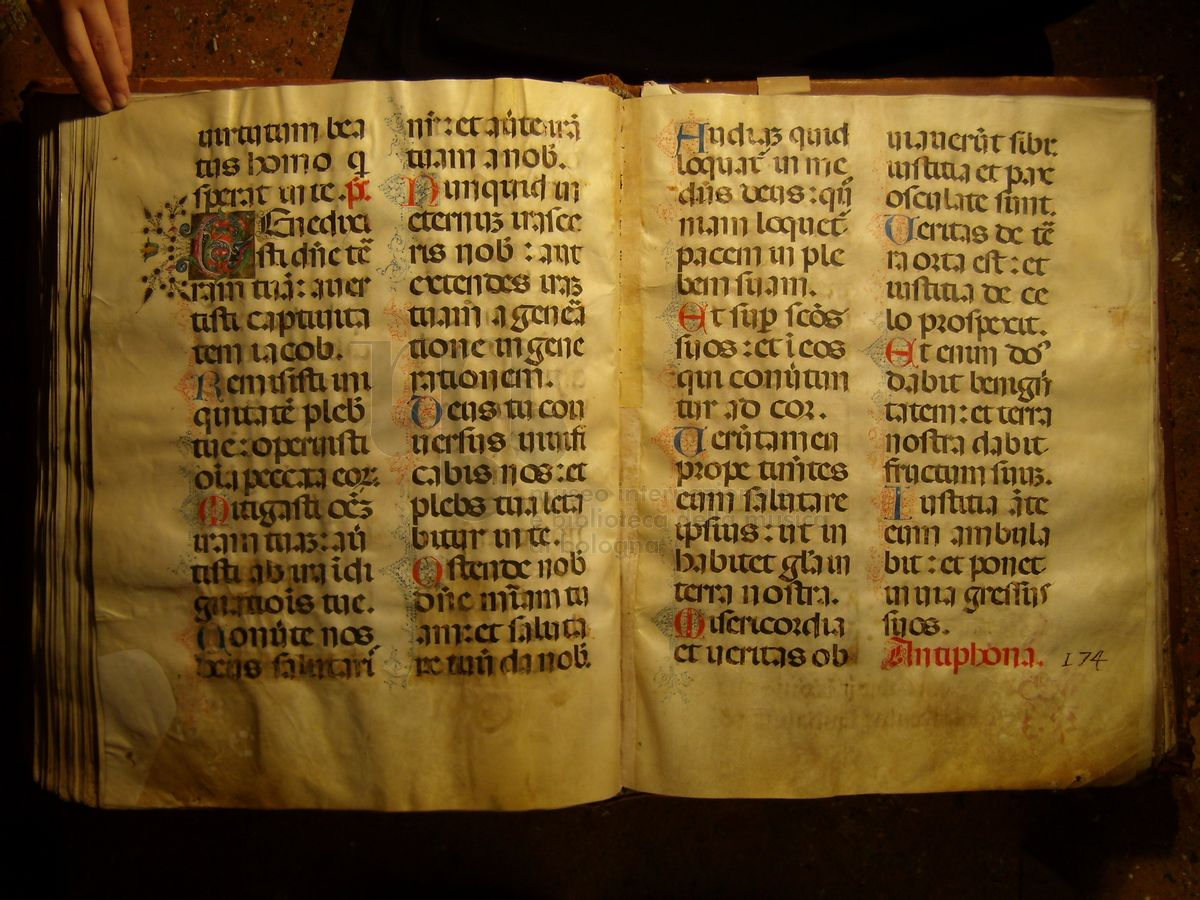 uirtutum bea
tus homo q̄
sperat in te. ps.
Benedixi
sti dn̄e tē
ram tuā: auer
tisti captiuita
tem iacob.
Remisisti ini
quitatē pleb̄
tue: operuisti
oīa peccata eoꝝ
Mitigasti oēꝫ
iram tuaꝫ: aū
tisti ab ira īdi
gnatiōis tue.
Conūte nos
deus salutari
nr̄: et aūte irā
tuam a nob̄.
Nunquid in
eternuꝫ irasce
ris nob̄: aut
extendes iraꝫ
tuam a genēa
tione in gene
rationem.
Deus tu con
uersus uiuifi
cabis nos: et
plebs tua leta
bitur in te.
Ostende nob̄
dn̄e mīam tu
am: et saluta
re tuū da nob̄.
Audiaꝫ quid
loquat̄ in me
dn̄s deus: qn̄
niam loquet̄
pacem in ple
bem suam.
Et suꝑ scōs
suos: et ī eos
qui conūtun
tur ad cor.
Uerūtamen
prope timētes
eum salutare
ipsius: ut in
habitet glā in
terra nostra.
Misericordia
et ueritas ob
uiauerūt sibi:
iustitia et pax
osculate sunt.
Ueritas de tē
ra orta est: et
iustitia de ce
lo prospexit.
Etenim dō
dabit benign̄
tatem: et terra
nostra dabit
fructum suuꝫ.
Iustitia āte
eum ambula
bit: et ponet
in uia gressus
suos.
Antiphona. 174